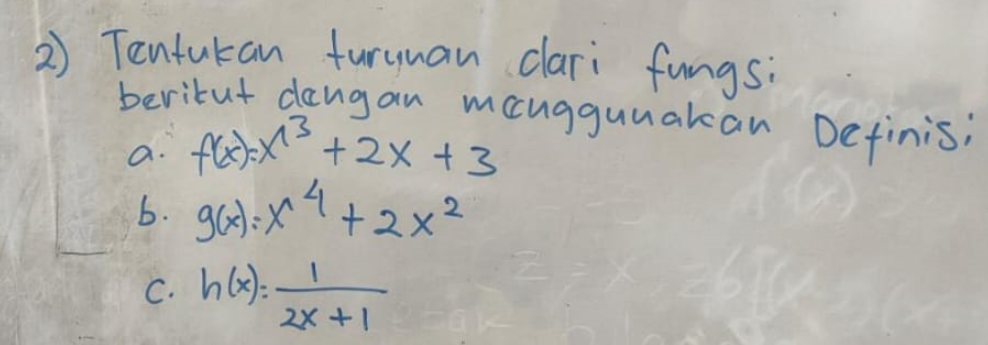 2) Tentukan turunan dari fungsi
berikut dengan menggunakan Definisi
a. f(x)=x³ + 2x + 3
b. g(x)=x⁴ + 2x²
c. h(x)= 1
2x + 1